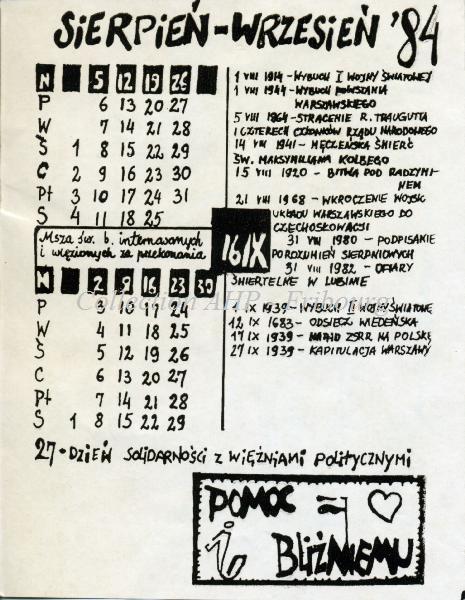 SIERPIEŃ - WRZESIEŃ '84
N 5 12 19 26
P 6 13 20 27
W 7 14 21 28
Ś 1 8 15 22 29
C 2 9 16 23 30
Pt 3 10 17 24 31
S 4 11 18 25
Msza św. b. internowanych
i więzionych za przekonania
16 IX
N 2 9 16 23 30
P 3 10 17 24
W 4 11 18 25
Ś 5 12 19 26
C 6 13 20 27
Pt 7 14 21 28
S 1 8 15 22 29
1 VIII 1914 - WYBUCH I WOJNY ŚWIATOWEJ
1 VIII 1944 - WYBUCH POWSTANIA
WARSZAWSKIEGO
5 VIII 1864 - STRACENIE R. TRAUGUTTA
I CZTERECH CZŁONKÓW RZĄDU NARODOWEGO
14 VIII 1941 - MĘCZEŃSKA ŚMIERĆ
ŚW. MAKSYMILIANA KOLBEGO
15 VIII 1920 - BITWA POD RADZYMI-
NEM
21 VIII 1968 - WKROCZENIE WOJSK
UKŁADU WARSZAWSKIEGO DO
CZECHOSŁOWACJI
31 VIII 1980 - PODPISANIE
POROZUMIEŃ SIERPNIOWYCH
31 VIII 1982 - OFIARY
ŚMIERTELNE W LUBINIE
1 IX 1939 - WYBUCH II WOJNY ŚWIATOWEJ
12 IX 1683 - ODSIECZ WIEDEŃSKA
17 IX 1939 - NAJAZD ZSRR NA POLSKĘ
27 IX 1939 - KAPITULACJA WARSZAWY
27 - DZIEŃ SOLIDARNOŚCI Z WIĘŹNIAMI POLITYCZNYMI
POMOC = ♡
i BLIŹNIEMU
Collection AHP - Fribourg